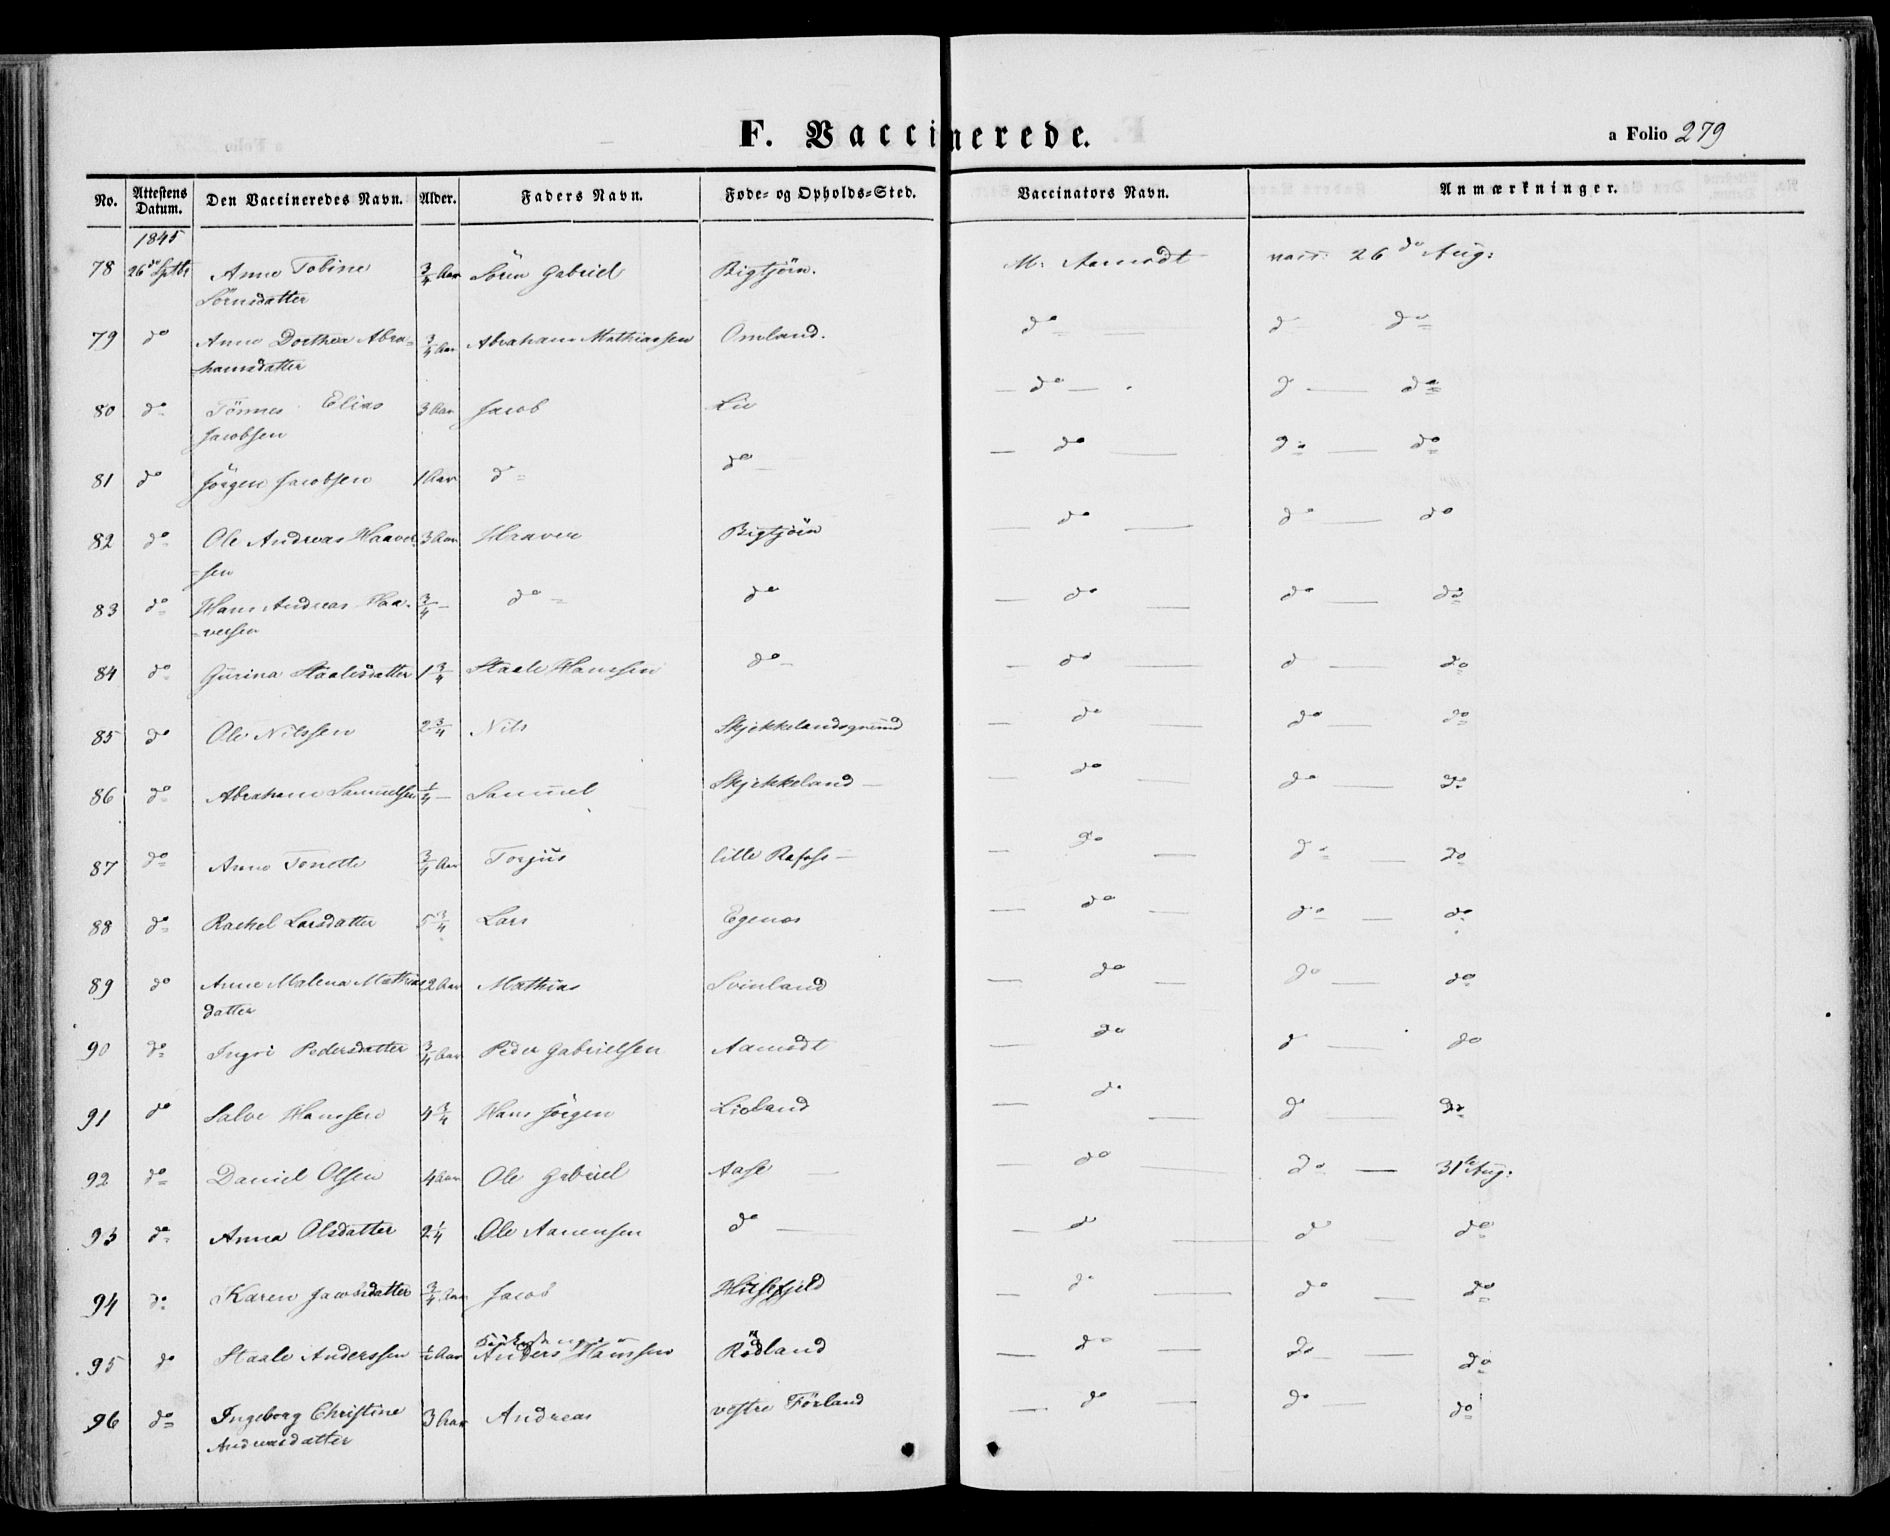 F. Vaccinerede.
a Folio 279
No. Attestens Datum. Den Vaccineredes Navn. Alder. Faders Navn. Føde- og Opholds-Sted. Vaccinators Navn. Anmærkninger.
1845
78 26de Septbr Anne Tobine 3/4 Aar Sören Gabriel Bigtjörn. M. Aamodt vacc. 26de Aug:
Sörnsdatter
79 do Anne Dorthea Abra= 3/4 Aar Abraham Mathiassen Omland. do do do
hamsdatter
80 do Tönnes Elias 3 Aar Jacob Lie do d do
Jacobsen
81 do Jörgen Jacobsen 1 Aar do do do do do
82 do Ole Andreas Haaver 3 Aar Haaver Bigtjörn do do do
sen
83 do Hans Andreas Haa= 3/4 — do do do do do
versen
84 do Gurina Staalesdatter 1 3/4 Staale Hanssen do do d do
85 do Ole Nilssen 2 3/4 Nils Skjekkelandsgrund do do do
86 do Abraham Samuelsen 1/4 — Samuel Skjekkeland do do do
87 do Anne Tonette 3/4 Aar Torjus lille Rafoss do do do
88 do Rachel Larsdatter 5 3/4 Lars Egenes do do do
89 do Anne Malena Mathias 2 Aar Mathias Svinland do do do
datter
90 do Ingri Pedersdatter 3/4 Aar Peder Gabrielsen Aamodt do d do
91 do Salve Hanssen 4 3/4 Hans Jörgen Lioland do d do
92 do Daniel Olsen 4 Aar Ole Gabriel Aase do do 31te Aug:
93 do Anna Olsdatter 2 1/4 Ole Aanensen do d d do
94 do Karen Jacobsdatter 3/4 Aar Jacob Hilsefjeld do do do
95 do Staale Anderssen 1/2 Aar Anders Hanssen Rödland do do do
96 do Ingeborg Christine 3 Aar Andreas vestre Förland do do do
Andreasdatter